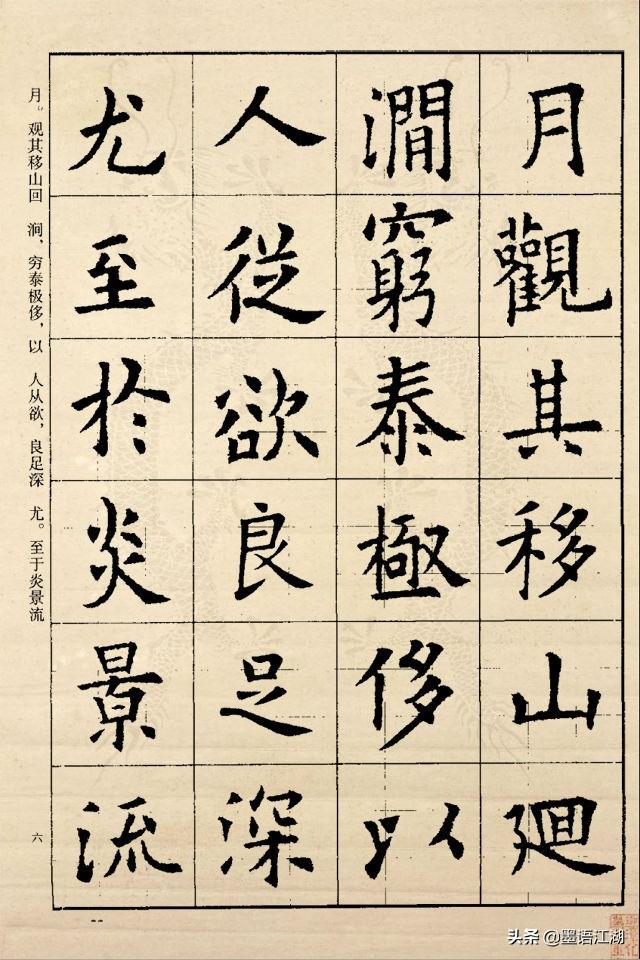 月觀其移山廻
澗窮泰極侈以
人從欲良足深
尤至於炎景流
月。观其移山回 涧，穷泰极侈，以 人从欲，良足深 尤。至于炎景流
六
头条 @墨语江湖